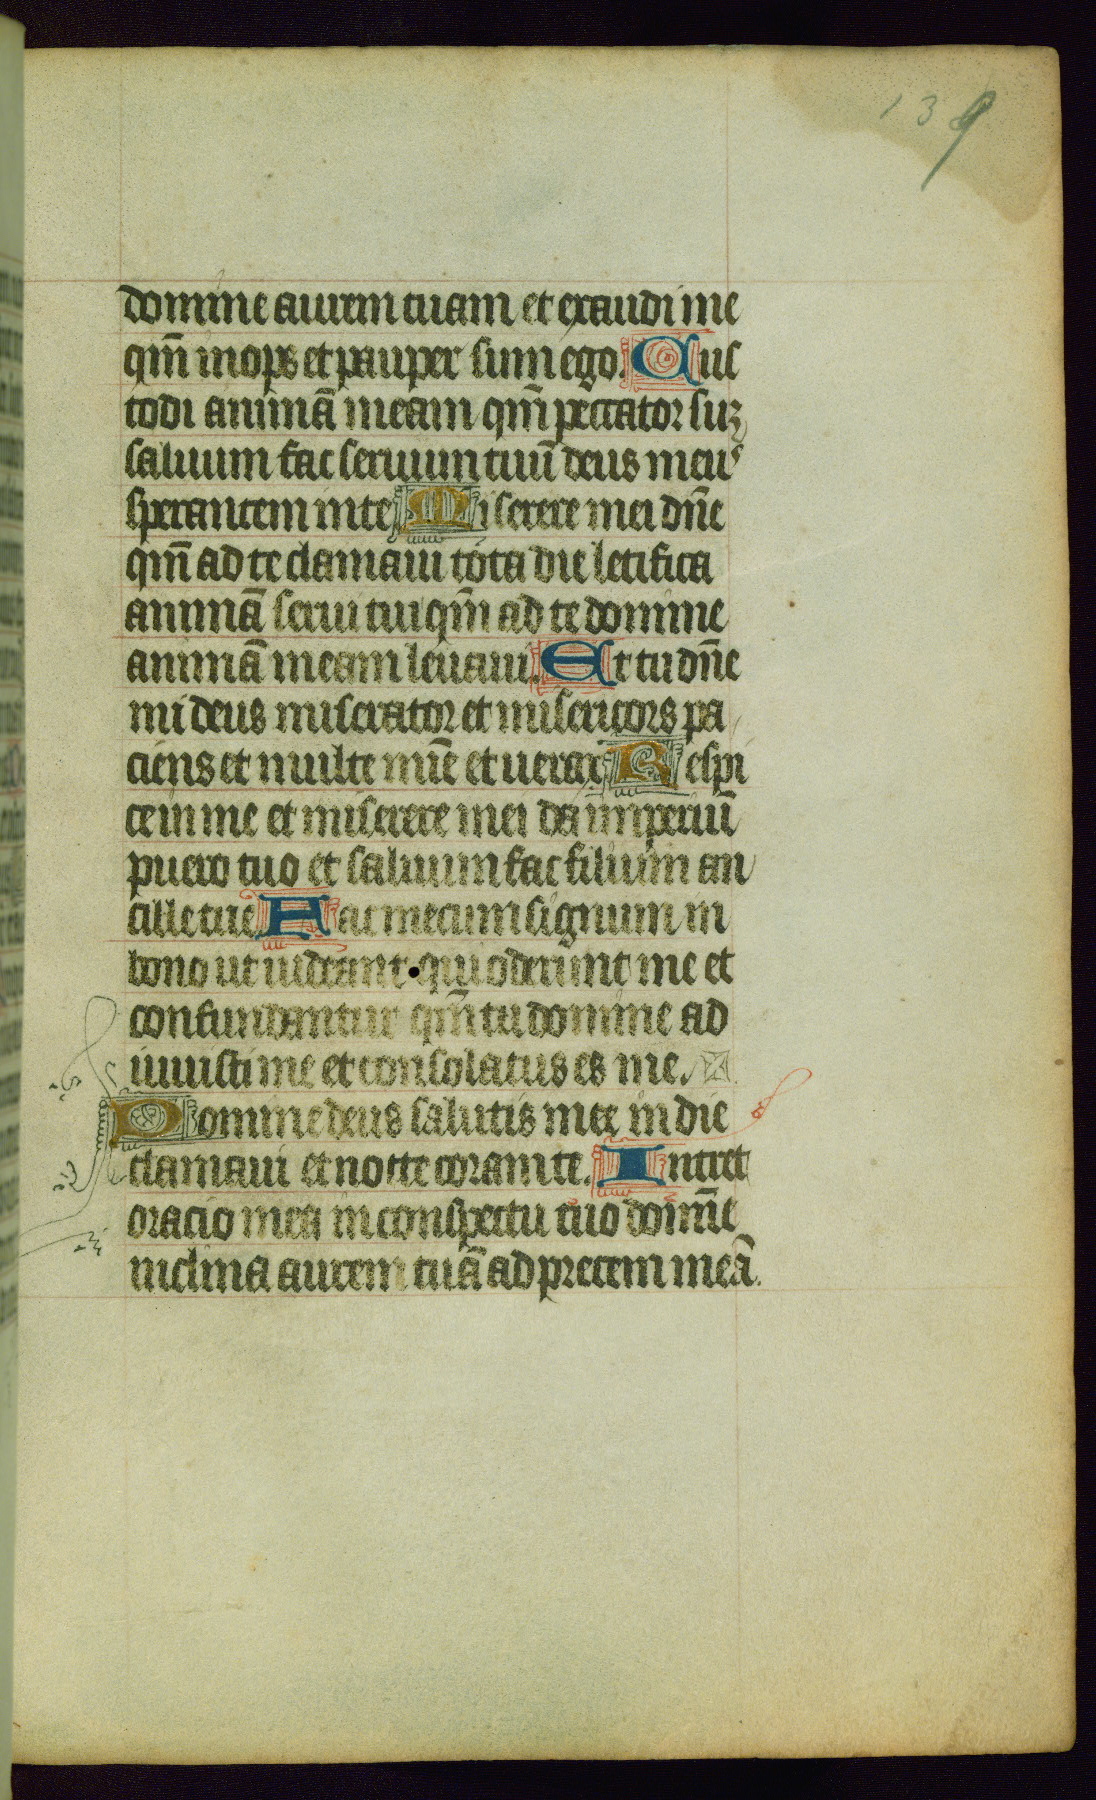 139
domine aurem tuam et exaudi me
qm̄ inops et pauper sum ego. Cus
todi animā meam qm̄ peccator suꝫ
saluum fac seruum tuū deus meus
sperantem in te Miserere mei dn̄e
qm̄ ad te clamaui tota die letifica
animā serui tui qm̄ ad te domine
animā meam leuaui. Et tu dn̄e
mi deus miserator et misericors pa
ciens et multe mīe et uerax Respi
ce in me et miserere mei da imperiū
puero tuo et saluum fac filium an
cille tue Fac mecum signum in
bono ut uideant qui oderunt me et
confundantur qm̄ tu domine ad
iuuisti me et consolatus es me.
Domine deus salutis mee in die
clamaui et nocte coram te. Intret
oracio mea in conspectu tuo domīe
inclina aurem tuā ad precem meā.